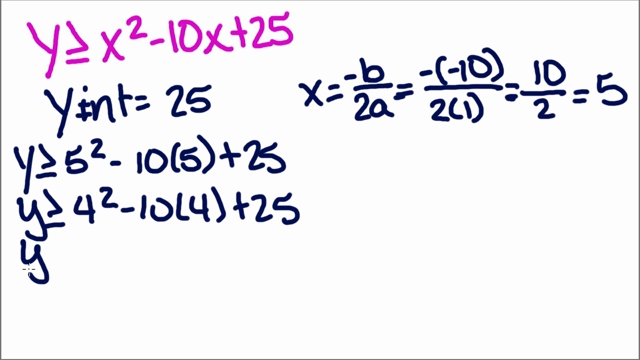 y ≥ x² - 10x + 25
y int = 25
x = -b/2a = -(-10)/2(1) = 10/2 = 5
y ≥ 5² - 10(5) + 25
y ≥ 4² - 10(4) + 25
y